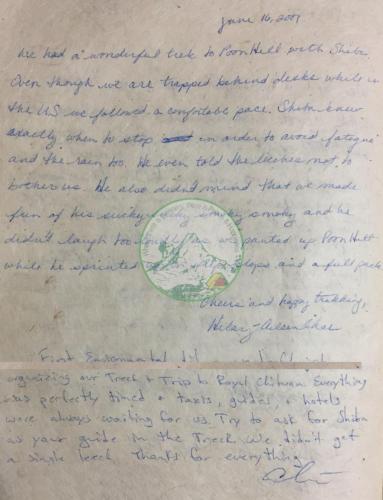 June 16, 2001
We had a wonderful trek to Poon Hill with Shiba.
Even though we are trapped behind desks while in
the US we followed a comfortable pace. Shiba knew
exactly when to stop in order to avoid fatigue
and the rain too. He even told the leeches not to
bother us. He also didn't mind that we made
fun of his smoky smoky and he
didn't laugh too as we panted up Poon Hill
while he sprinted and a full pack
Cheers and happy trekking,
First
organizing our Treck + Trip to Royal Chitwan Everything
was perfectly timed + taxis, guides + hotels
were always waiting for us. Try to ask for Shiba
as your guide in the Treck we didn't get
a single leech Thanks for everything